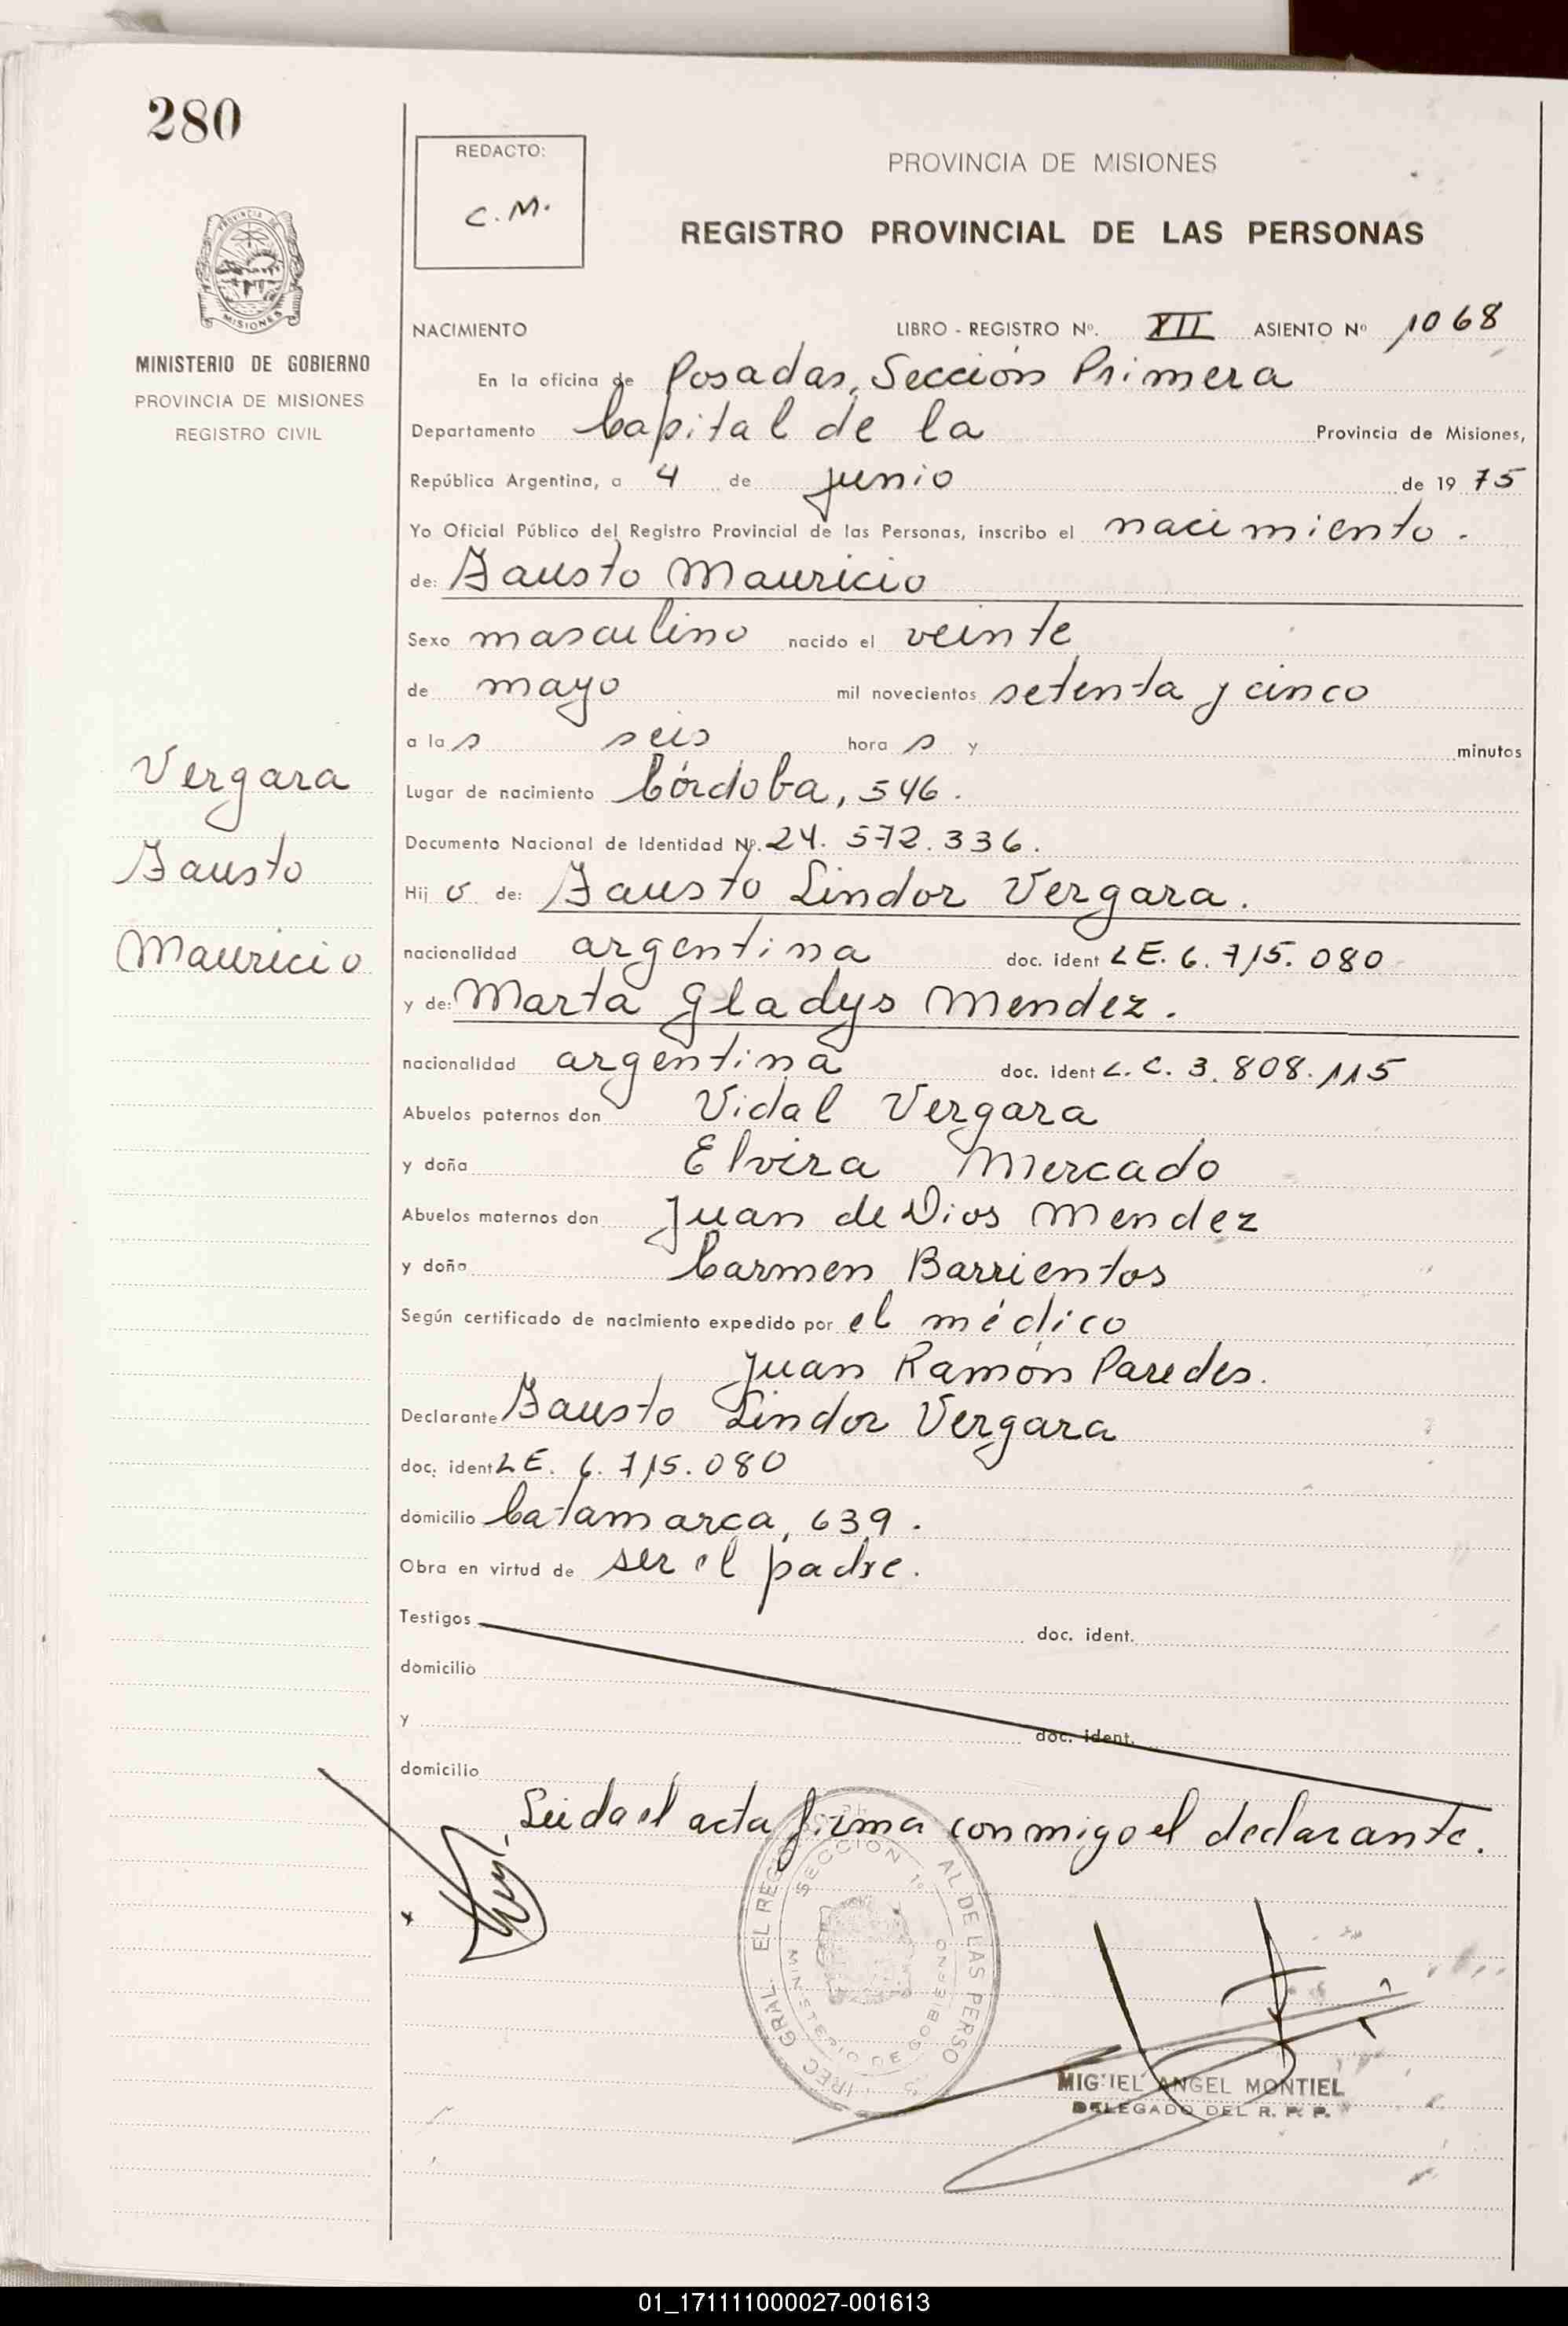 280
REDACTO:
C. M.
PROVINCIA DE MISIONES
REGISTRO PROVINCIAL DE LAS PERSONAS
MISIONES
MINISTERIO DE GOBIERNO
PROVINCIA DE MISIONES
REGISTRO CIVIL
NACIMIENTO LIBRO - REGISTRO Nº. XII ASIENTO Nº 1068
En la oficina de Posadas, Sección Primera
Departamento Capital de la Provincia de Misiones,
República Argentina, a 4 de junio de 19 75
Yo Oficial Público del Registro Provincial de las Personas, inscribo el nacimiento.
de: Fausto Mauricio
Sexo masculino nacido el veinte
de mayo mil novecientos setenta y cinco
a la s seis hora s y minutos
Lugar de nacimiento Córdoba, 546.
Documento Nacional de Identidad Nº. 24. 572. 336.
Hij o de: Fausto Lindor Vergara.
nacionalidad argentina doc. ident LE. 6. 715. 080
y de: Marta Gladys Mendez.
nacionalidad argentina doc. ident L. C. 3. 808. 115
Abuelos paternos don Vidal Vergara
y doña Elvira Mercado
Abuelos maternos don Juan de Dios Mendez
y doña Carmen Barrientos
Según certificado de nacimiento expedido por el médico
Juan Ramón Paredes.
Declarante Fausto Lindor Vergara
doc. ident LE. 6. 715. 080
domicilio Catamarca, 639.
Obra en virtud de ser el padre.
Testigos doc. ident.
domicilio
y doc. ident.
domicilio
Leida el acta firma conmigo el declarante.
Vergara
Fausto
Mauricio
SECCION 1º
AL DE LAS PERSO
MINISTERIO DE GOBIERNO
MIGUEL ANGEL MONTIEL
DELEGADO DEL R. P. P.
01_171111000027-001613